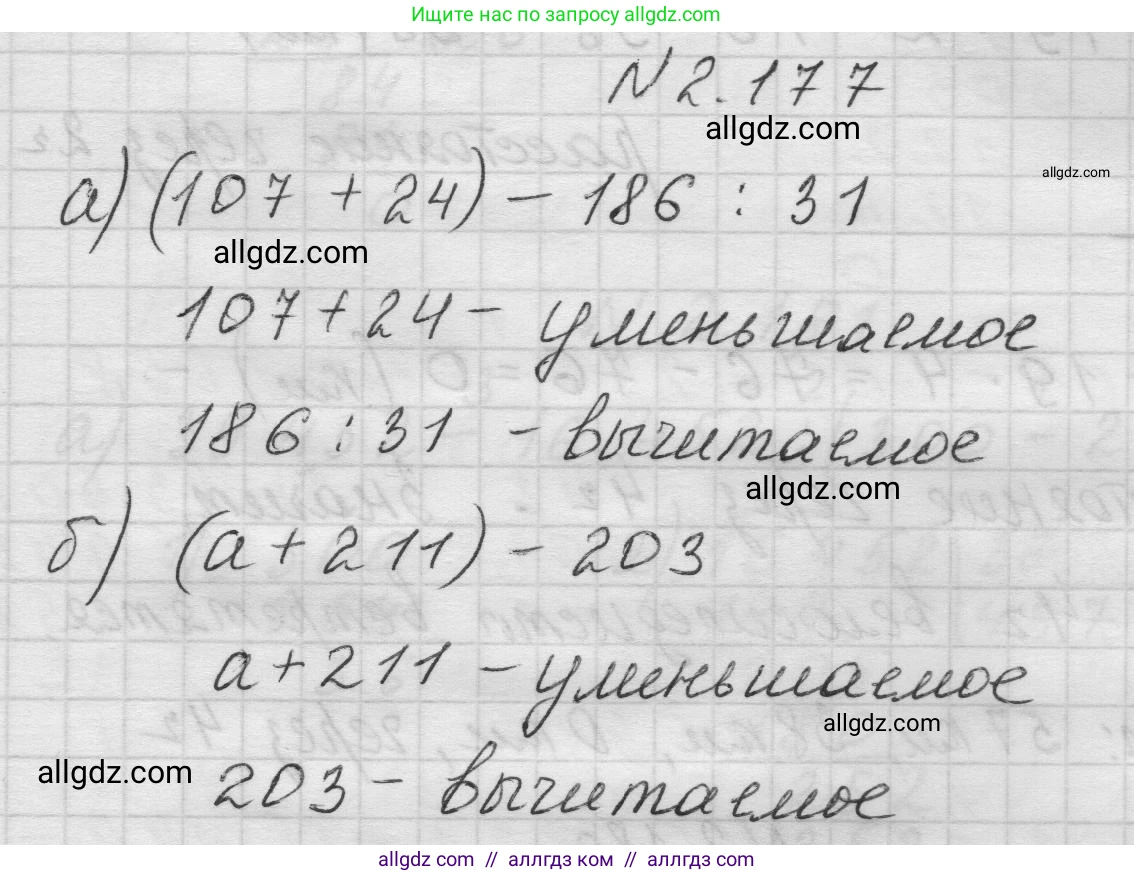 Ищите нас по запросу allgdz.com
N 2.177
allgdz.com
а) (107 + 24) - 186 : 31
allgdz.com
allgdz.com
107 + 24 - уменьшаемое
186 : 31 - вычитаемое
allgdz.com
б) (a + 211) - 203
a + 211 - уменьшаемое
allgdz.com
allgdz.com
203 - вычитаемое
allgdz com // аллгдз ком // аллгдз com